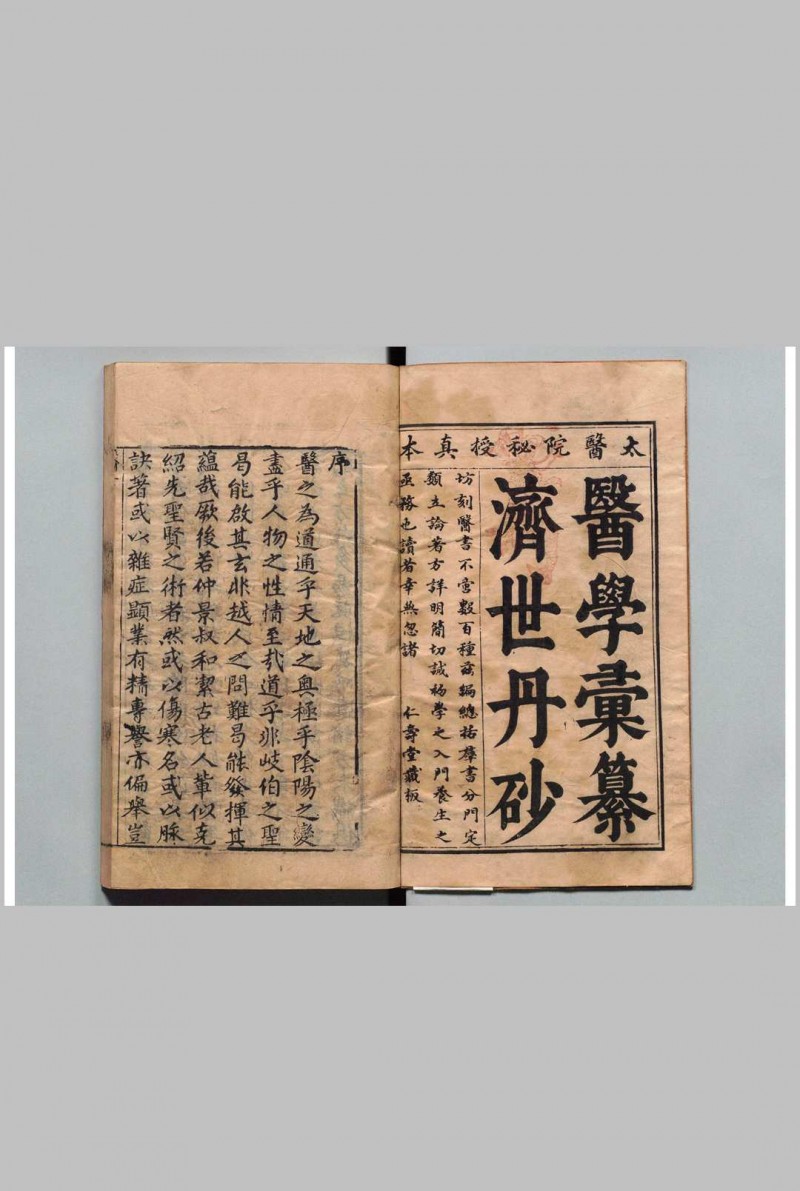 太醫院秘授真本
醫學彙纂
濟世丹砂
坊刻醫書不啻数百種茲編總括群書分門定
類立論著方詳明簡切誠初學之入門養生之
亟務也讀者幸無忽諸
仁壽堂藏板
序
醫之為道通乎天地之奧極乎陰陽之變
盡乎人物之性情至㢤道乎非岐伯之聖
曷能啟其玄非越人之問難曷能發揮其
蘊哉厥後若仲景叔和潔古老人軰似克
紹先聖賢之術者然或以傷寒名或以脈
訣著或以雜症顕業有精專譽亦偏舉豈